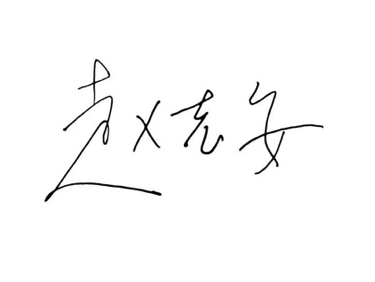 赵志安